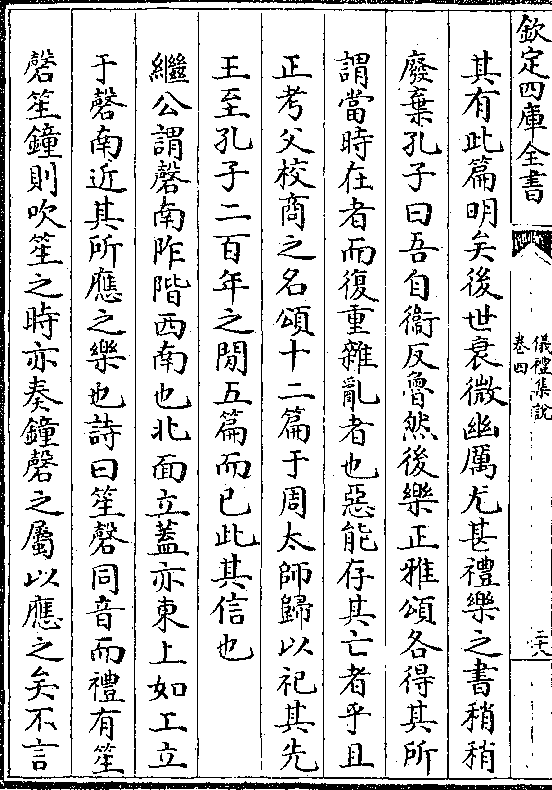 欽定四庫全書
儀禮集說
卷四
二六
其有此篇明矣後世衰微幽厲尤甚禮樂之書稍稍
廢棄孔子曰吾自衞反魯然後樂正雅頌各得其所
謂當時在者而復重雜亂者也惡能存其亡者乎且
正考父校商之名頌十二篇于周太師歸以祀其先
王至孔子二百年之閒五篇而已此其信也
繼公謂磬南阼階西南也北面立蓋亦東上如工立
于磬南近其所應之樂也詩曰笙磬同音而禮有笙
磬笙鐘則吹笙之時亦奏鐘磬之屬以應之矣不言